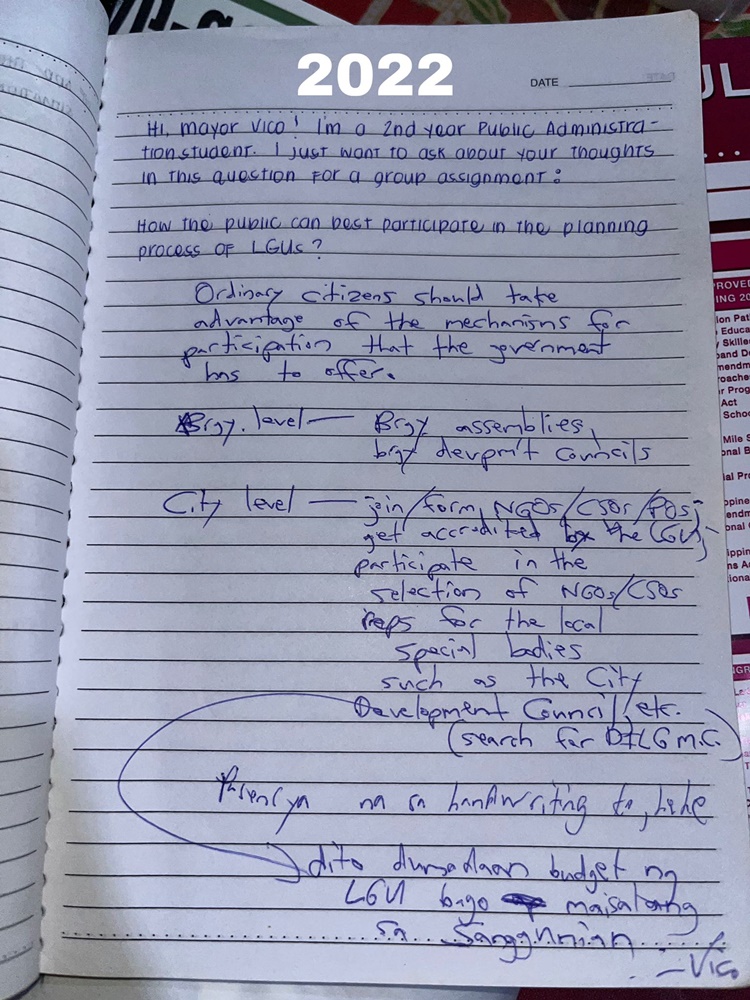 2022
DATE
Hi, mayor Vico! I'm a 2nd year Public Administra-
tion student. I just want to ask about your thoughts
in this question for a group assignment:
How the public can best participate in the planning
process of LGUs?
Ordinary citizens should take
advantage of the mechanisms for
participation that the government
has to offer.
Brgy. level — Brgy assemblies,
brgy devpm't councils
City level — join/form NGOs/CSOs/POs;
get accredited by the LGU;
participate in the
selection of NGOs/CSOs
reps for the local
special bodies
such as the City
Development Council, etc.
(search for DILG M.C.)
Pasensya na sa handwriting ko, hehe
dito dumadaan budget ng
LGU bago maisalang
sa Sanggunian
- Vico
UL
PROVED
ING 20
ion Pat
Educa
Skille
and D
mendm
roache
r Prog
Act
Schoo
Mile S
onal B
ial Pr
ppine
endm
onal
ippin
ns A
iona
NGR